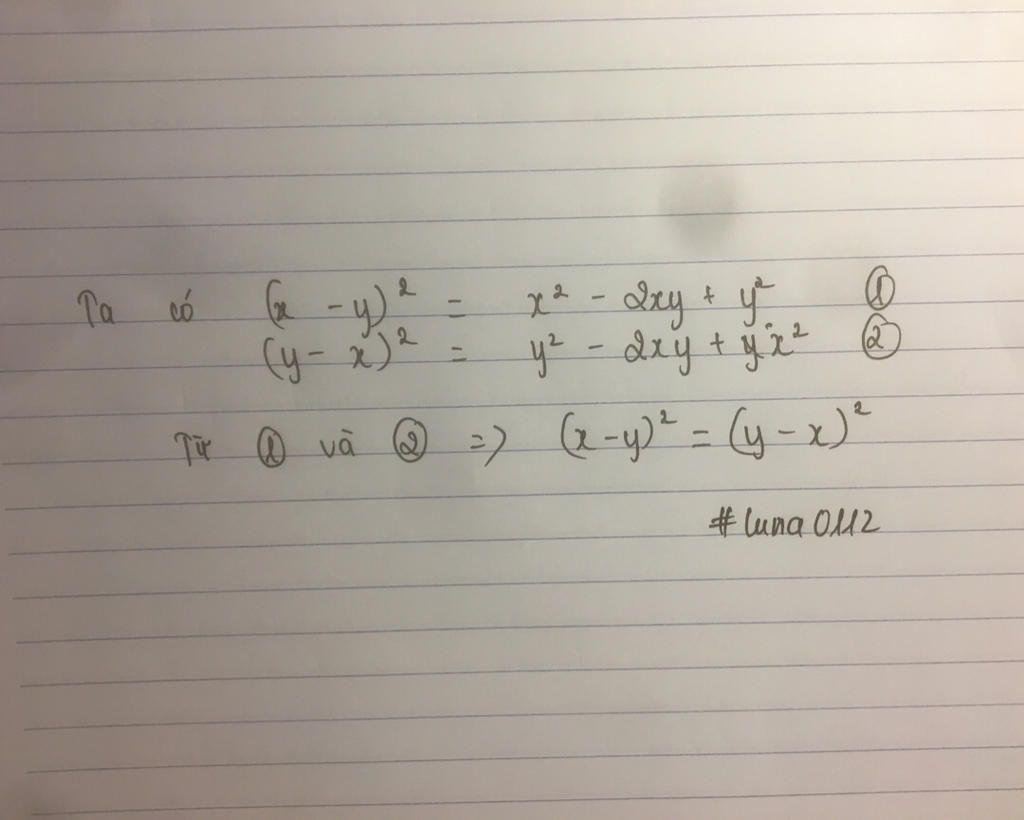 Ta có (x - y)² = x² - 2xy + y² ①
(y - x)² = y² - 2xy + x² ②
Từ ① và ② => (x - y)² = (y - x)²
#luna0112